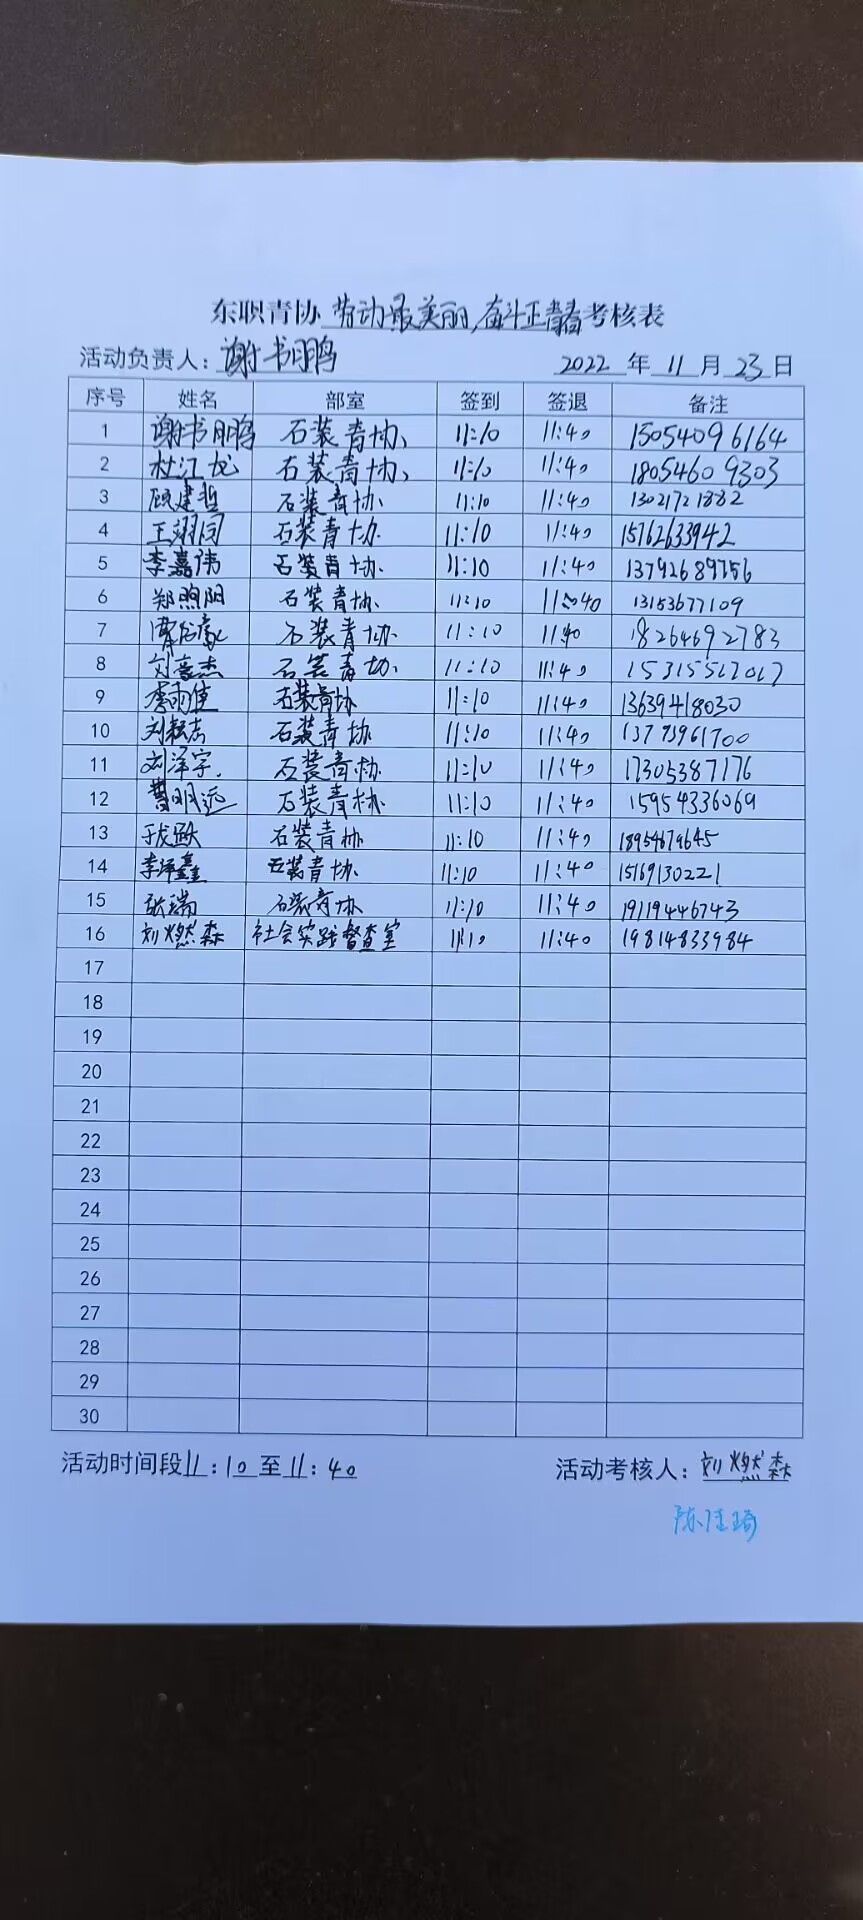 东职青协劳动最美丽,奋斗正青春考核表
活动负责人:谢书鹏 2022 年 11 月 23 日
序号 姓名 部室 签到 签退 备注
1 谢书鹏 石装青协 11:10 11:40 15054096164
2 杜江龙 石装青协 11:10 11:40 18054609303
3 顾建哲 石装青协 11:10 11:40 13021721882
4 王翊同 石装青协 11:10 11:40 15762633942
5 李嘉伟 石装青协 11:10 11:40 13792689756
6 郑煦阳 石装青协 11:10 11:40 13153677109
7 石装青协 11:10 11:40 18264692783
8 刘豪杰 石装青协 11:10 11:40 15315517017
9 李雨佳 石装青协 11:10 11:40 13639418030
10 石装青协 11:10 11:40 13793961700
11 刘泽宇 石装青协 11:10 11:40 17305387176
12 曹明远 石装青协 11:10 11:40 15954336069
13 于龙跃 石装青协 11:10 11:40 18954679645
14 李泽鑫 石装青协 11:10 11:40 15169130221
15 张瑞 石装青协 11:10 11:40 19119446743
16 刘燃森 社会实践督查室 11:10 11:40 19814833984
17
18
19
20
21
22
23
24
25
26
27
28
29
30
活动时间段11:10至11:40 活动考核人:刘燃森
陈佳琦